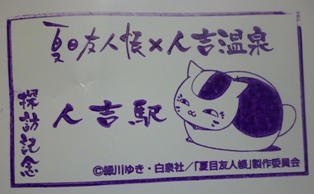 夏目友人帳×人吉温泉
探訪記念
人吉駅
©緑川ゆき・白泉社／「夏目友人帳」製作委員会